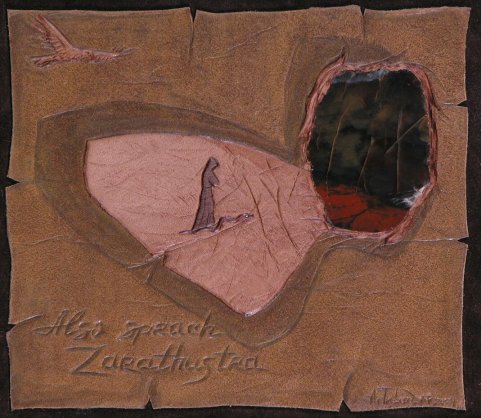 Also sprach
Zarathustra